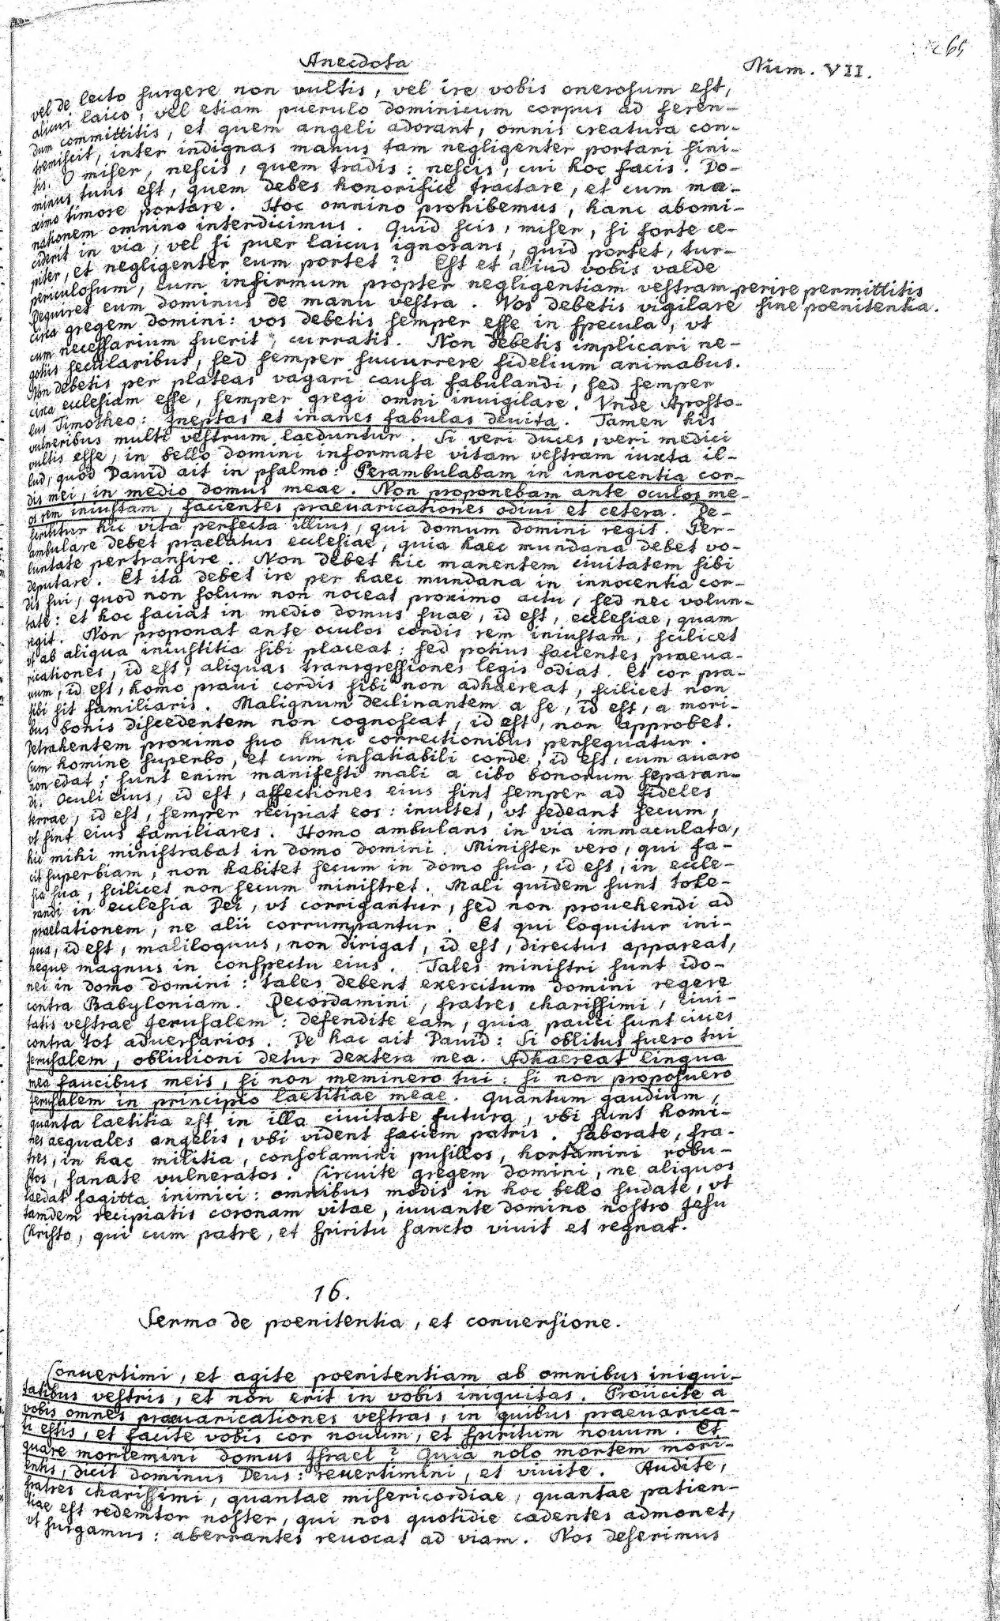 65
Anecdota Num. VII.
vel de lecto surgere non vultis, vel ire vobis onerosum est,
alicui laico, vel etiam puerulo dominicum corpus ad feren-
dum committitis, et quem angeli adorant, omnis creatura con-
tremiscit, inter indignas manus tam negligenter portari sini-
tis. O miser, nescis, quem tradis: nescis, cui hoc facis. Do-
minus tuus est, quem debes honorifice tractare, et cum ma-
ximo timore portare. Hoc omnino prohibemus, hanc abomi-
nationem omnino interdicimus. Quid scis, miser, si forte ce-
ciderit in via, vel si puer laicus ignorans, quid portet, tur-
piter, et negligenter eum portet? Est et aliud vobis valde
periculosum, cum infirmum propter negligentiam vestram perire permittitis
Requiret eum dominus de manu vestra. Vos debetis vigilare sine poenitentia.
circa gregem domini: vos debetis semper esse in specula, vt
cum necessarium fuerit, curratis. Non debetis implicari ne-
gotiis secularibus, sed semper succurrere fidelium animabus.
Non debetis per plateas vagari causa fabulandi, sed semper
circa ecclesiam esse, semper gregi omni inuigilare. Vnde Aposto-
lus Timotheo: Ineptas et inanes fabulas deuita. Tamen his
vulneribus multi vestrum laeduntur. Si veri duces, veri medici
vultis esse, in bello domini informate vitam vestram iuxta il-
lud, quod Dauid ait in psalmo: Perambulabam in innocentia cor-
dis mei, in medio domus meae. Non proponebam ante oculos me-
os rem iniustam, facientes praeuaricationes odiui et cetera. De-
scribitur hic vita perfecta illius, qui domum domini regit. Per-
ambulare debet praelatus ecclesiae, quia haec mundana debet vo-
luntate pertransire. Non debet hic manentem ciuitatem sibi
deputare. Et ita debet ire per haec mundana in innocentia cor-
dis sui, quod non solum non noceat proximo actu, sed nec volun-
tate: et hoc faciat in medio domus suae, id est, ecclesiae, quam
regit. Non proponat ante oculos cordis rem iniustam, scilicet
vt ab aliqua iniustitia sibi placeat: sed potius facientes praeua-
ricationes, id est, aliquas transgressiones legis odiat. Et cor pra-
uum, id est, homo praui cordis sibi non adhaereat, scilicet non
sibi sit familiaris. Malignum declinantem a se, id est, a mori-
bus bonis discedentem non cognoscat, id est, non approbet.
Detrahentem proximo suo hunc correctionibus persequatur.
Cum homine superbo, et cum insatiabili corde, id est, cum auaro
non edat; sunt enim manifesti mali a cibo bonorum separan-
di. Oculi eius, id est, affectiones eius sint semper ad fideles
terrae, id est, semper recipiat eos: inuitet, vt sedeant secum,
vt sint eius familiares. Homo ambulans in via immaculata,
hic mihi ministrabat in domo domini. Minister vero, qui fa-
cit superbiam, non habitet secum in domo sua, id est, in eccle-
sia sua, scilicet non secum ministret. Mali quidem sunt tole-
randi in ecclesia Dei, vt corrigantur, sed non prouehendi ad
praelationem, ne alii corrumpantur. Et qui loquitur ini-
qua, id est, maliloquus, non dirigat, id est, directus appareat,
neque magnus in conspectu eius. Tales ministri sunt ido-
nei in domo domini: tales debent exercitum domini regere
contra Babyloniam. Recordamini, fratres charissimi, ciui-
tatis vestrae Jerusalem: defendite eam, quia pauci sunt ciues
contra tot aduersarios. De hac ait Dauid: Si oblitus fuero tui
Jerusalem, obliuioni detur dextera mea. Adhaereat lingua
mea faucibus meis, si non meminero tui: si non proposuero
Jerusalem in principio laetitiae meae. Quantum gaudium,
quanta laetitia est in illa ciuitate futura, vbi sunt homi-
nes aequales angelis, vbi vident faciem patris. Laborate, fra-
tres, in hac militia, consolamini pusillos, hortamini robu-
stos, sanate vulneratos. Circuite gregem domini, ne aliquos
laedat sagitta inimici: omnibus modis in hoc bello sudate, vt
tamdem recipiatis coronam vitae, iuuante domino nostro Jesu
Christo, qui cum patre, et spiritu sancto viuit et regnat.
16.
Sermo de poenitentia, et conuersione.
Conuertimi, et agite poenitentiam ab omnibus iniqui-
tatibus vestris, et non erit in vobis iniquitas. Proiicite a
vobis omnes praeuaricationes vestras, in quibus praeuarica-
ti estis, et facite vobis cor nouum, et spiritum nouum. Et
quare mortemini domus Israel? Quia nolo mortem mori-
entis, dicit dominus Deus: reuertimini, et viuite. Audite,
fratres charissimi, quantae misericordiae, quantae patien-
tiae est redemtor noster, qui nos quotidie cadentes admonet,
vt surgamus: aberrantes reuocat ad viam. Nos deserimus